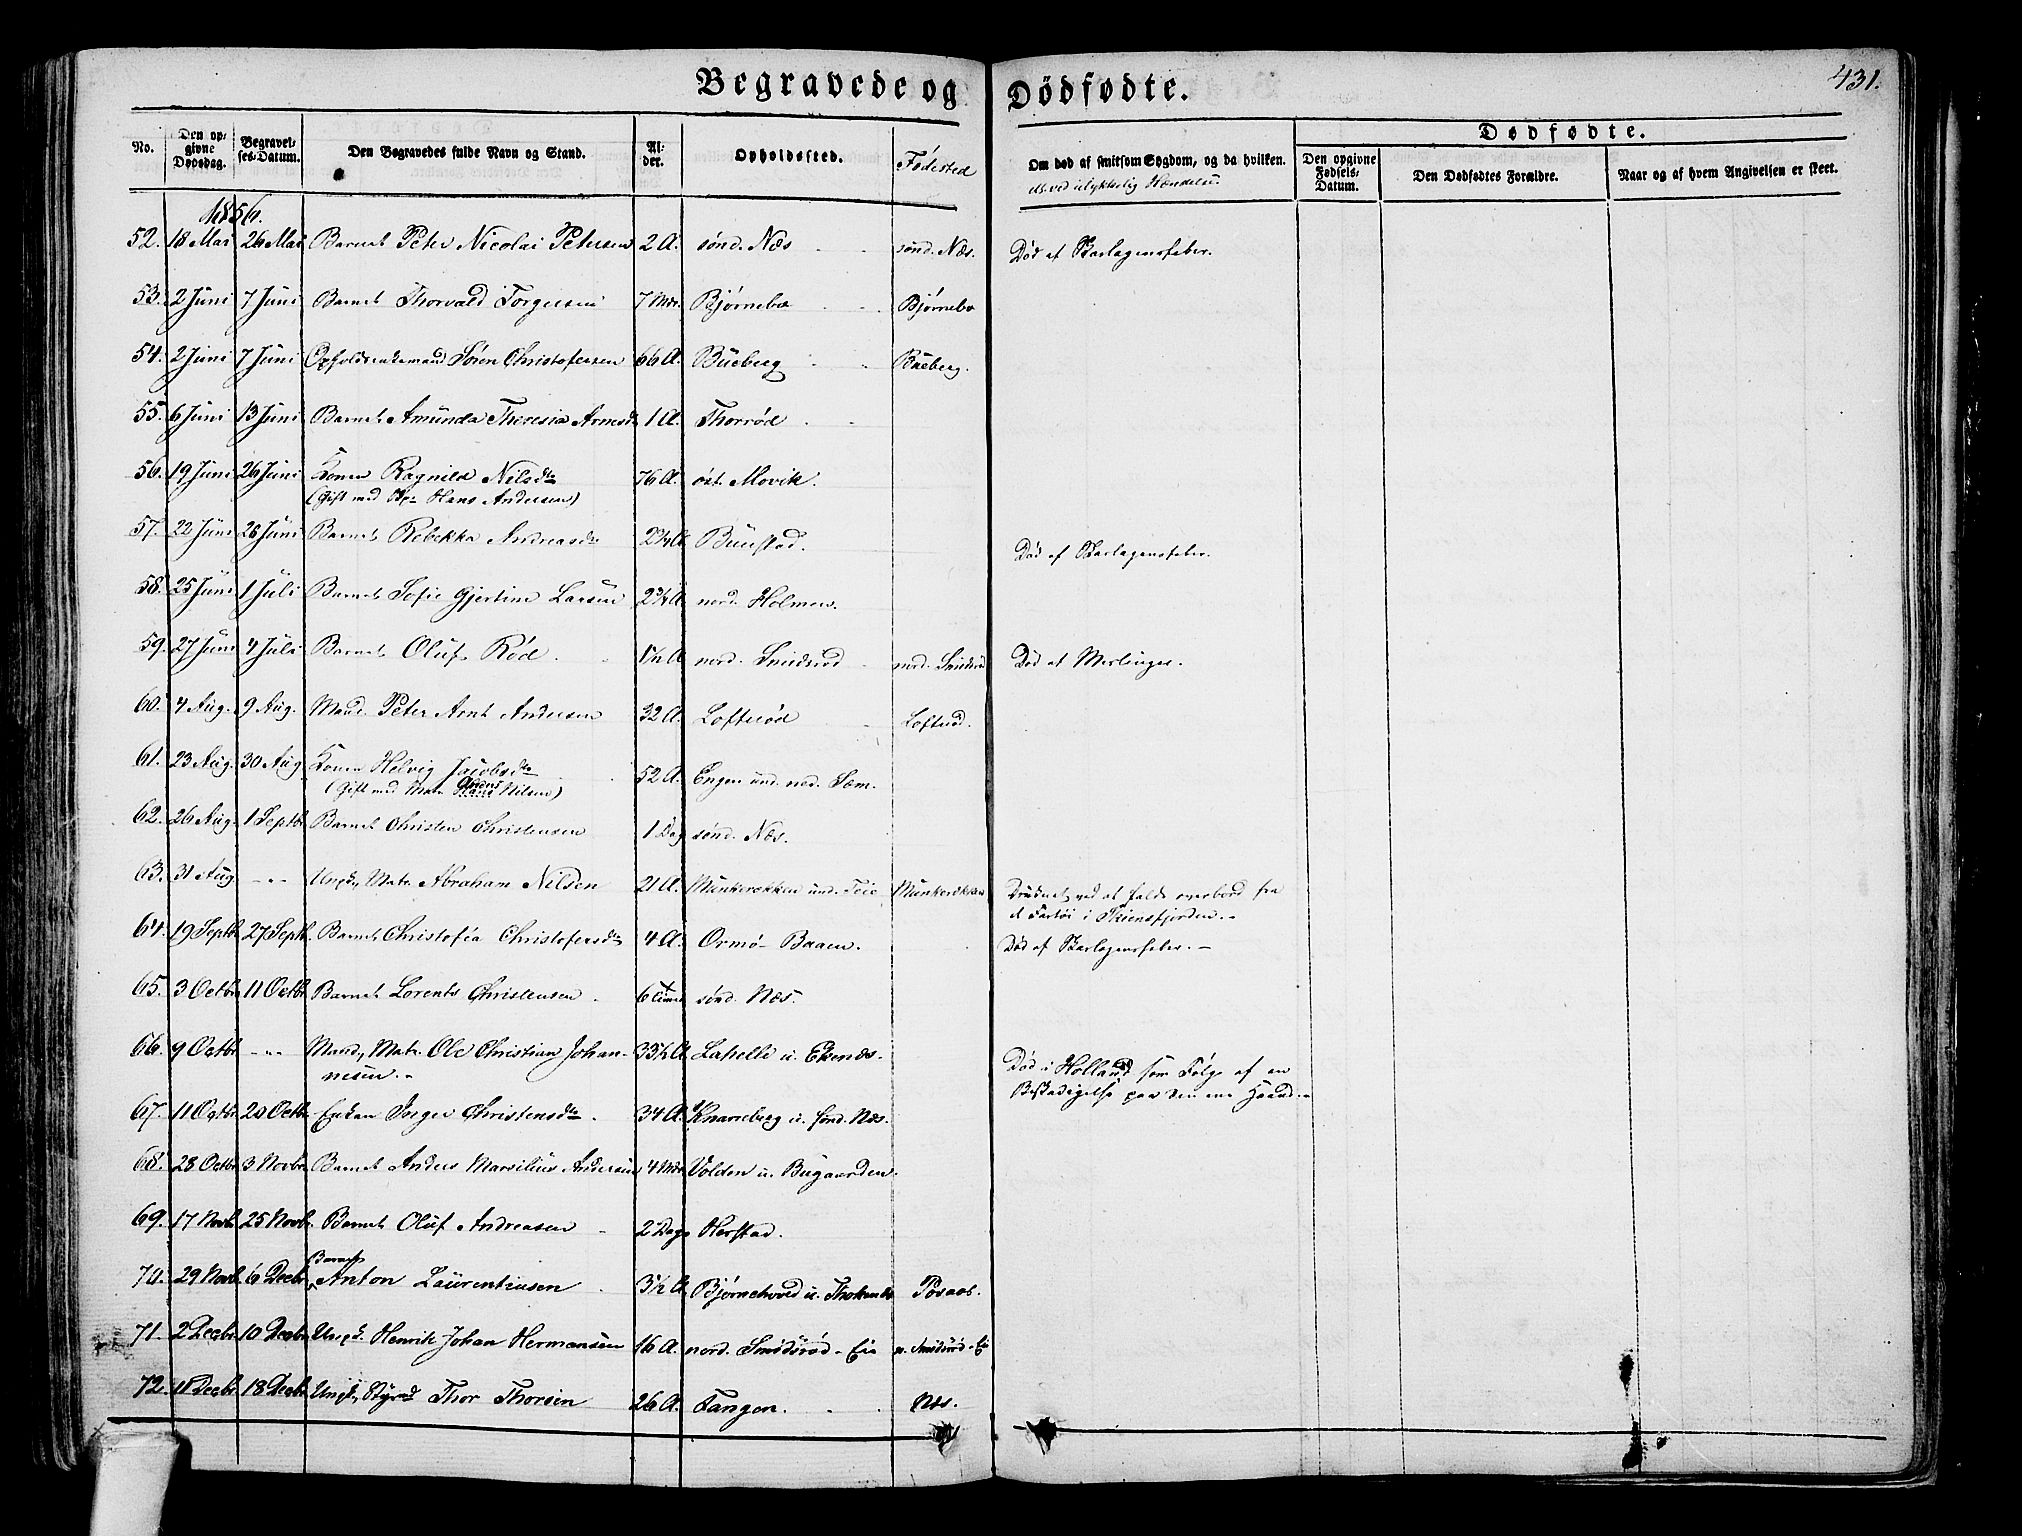 Begravede og Dødfødte.
431.
No. Den opgivne Dødsdag. Begravelses-Datum. Den Begravedes fulde Navn og Stand. Alder. Opholdssted. Fødested Om død af smitsom Sygdom, og da hvilken. el. ved ulykkelig Hændelse Dødfødte. Den opgivne Fødsels-Datum. Den Dødfødtes Forældre. Naar og af hvem Angivelsen er skeet.
1856.
52. 18 Mai 26 Mai Barnet Peter Nicolai Petersen 2 A. sønd. Næs sönd. Næs. Død af Skarlagensfeber.
53. 2 Juni 7 Juni Barnet Thorvald Torgersen 7 Mdr. Bjørnebo Bjørnebo
54. 2 Juni 7 Juni Opholdsmand Søren Christofersen 66 A. Büeberg Büeberg.
55. 6 Juni 13 Juni Barnet Amunda Theresia Arnesdtr 1 A. Thorrød
56. 19 Juni 26 Juni Konen Ragnild Nilsdtr 76 A. øst. Movik.
(Gift med Hans Andersen)
57. 22 Juni 28 Juni Barnet Rebekka Andreasdtr 2¼ A Buustad. Død af Skarlagensfeber.
58. 25 Juni 1 Juli Barnet Sofie Gjertine Larsen 2¾ A nord. Holmen.
59. 27 Juni 4 Juli Barnet Oluf Rød 1½ A nord. Smidsrød nord. Smidsrød Død af Meslinger.
60. 4 Aug. 9 Aug. Mand. Peter Arnt Andersen 32 A. Lofterød Loftrød.
61. 23 Aug. 30 Aug. Konen Helvig Jacobsdtr 52 A. Engen und. ned. Sem.
(Gift med Matr. Anders Nilsen)
62. 26 Aug. 1 Septbr Barnet Christen Christensen 1 Dag sønd. Næs.
63. 31 Aug. -"- Ungk, Matr. Abraham Nilsen 21 A. Munkerekken und. Teie Munkerekken Druknet ved at falde overbord fra
et Fartøi i Skiensfjorden.-
64. 19 Septbr 27 Septbr. Barnet Christofia Christofersdtr 4 A. Ormø - Baaen. Død af Skarlagensfeber.-
65. 3 Octbr 11 Octbr Barnet Lorents Christensen 6 sønd. Næs.
66. 9 Octbr -"- Mand, Matr. Ole Christian Johan- 35½ A Lahelle u. Ekenæs. Død i Holland som Følge af en
nesen.- Beskadigelse paa den ene Haand.-
67. 11 Octbr 20 Octbr Enken Inger Christensdtr 34 A. Knarreberg u. sønd. Næs.
68. 28 Octbr 3 Novbr Barnet Anders Marsilius Andersen 4 Mdr Volden u. Bugaarden.
69. 17 Novbr 25 Novbr. Barnet Oluf Andreasen 2 Dage Herstad.
70. 29 Novbr 6 Decbr Barnet Anton Laurentiusen 3½ A. Bjørnehoved u. Tosaas.
71. 2 Decbr 10 Decbr Ungk. Henrik Johan Hermansen 16 A. nord. Smidsrød - Eie n. Smidsrød - Eie
72. 11 Decbr 18 Decbr Ungk, Styrmd Thor Thorsen 26 A. Tangen. Næs.